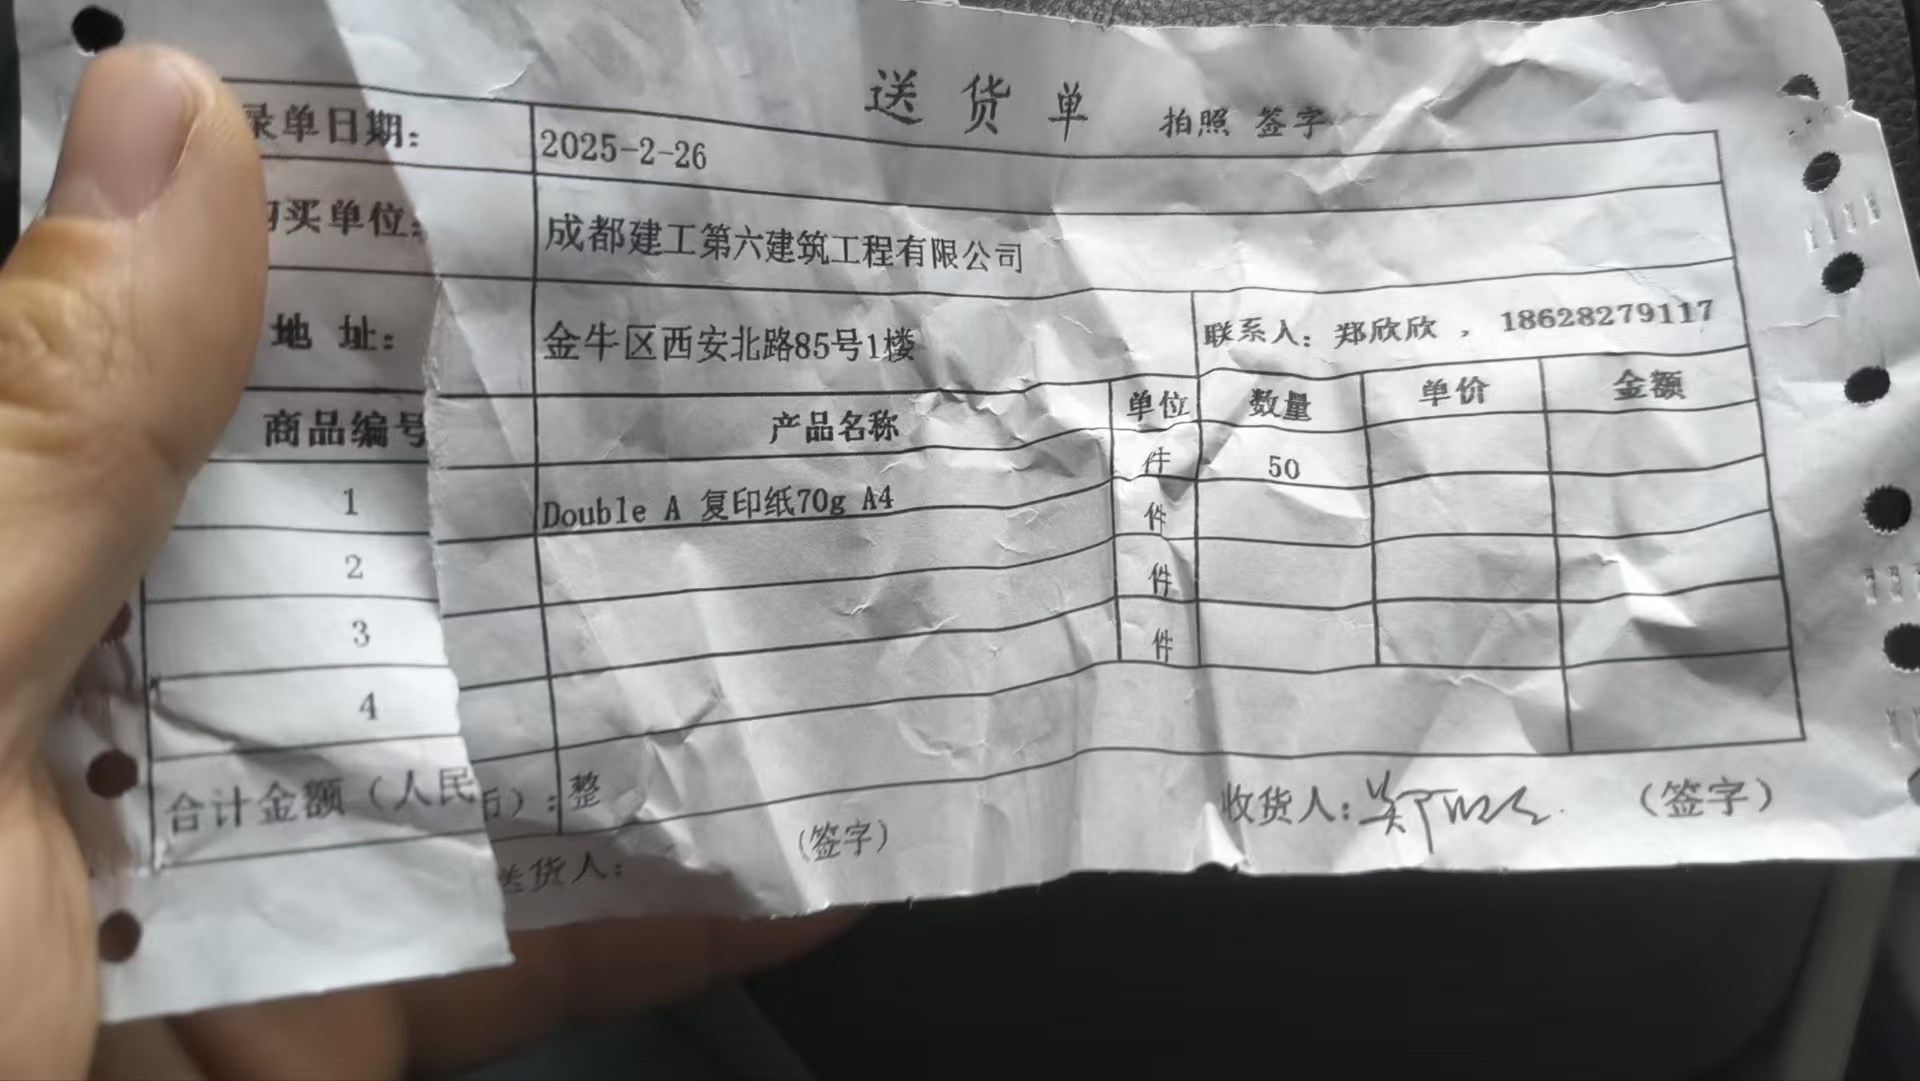 送货单 拍照 签字
录单日期: 2025-2-26
购买单位: 成都建工第六建筑工程有限公司
地 址: 金牛区西安北路85号1楼 联系人: 郑欣欣 , 18628279117
商品编号 产品名称 单位 数量 单价 金额
1 Double A 复印纸70g A4 件 50
2 件
3 件
4 件
合计金额（人民币）: 整
送货人: （签字） 收货人: （签字）